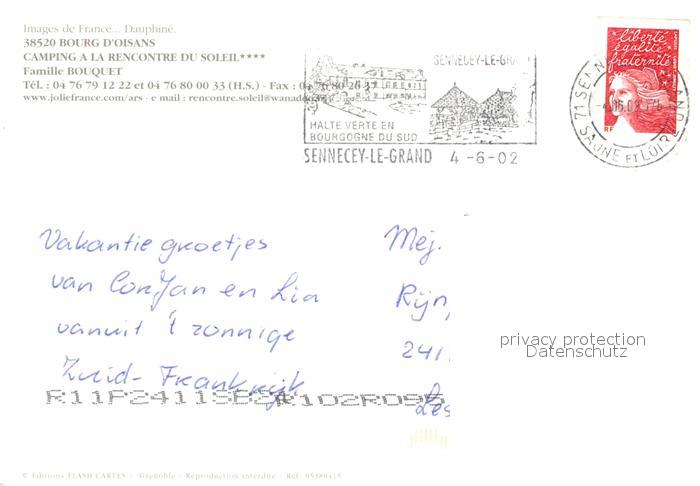 Images de France... Dauphiné.
38520 BOURG D'OISANS
CAMPING A LA RENCONTRE DU SOLEIL****
Famille BOUQUET
Tél. : 04 76 79 12 22 et 04 76 80 00 33 (H.S.) - Fax : 04 76 80 26 37
www.joliefrance.com/ars - e mail : rencontre.soleil@wanadoo
SENNECEY-LE-GRA
HALTE VERTE EN
BOURGOGNE DU SUD
SENNECEY-LE-GRAND 4-6-02
liberté
égalité
fraternité
RF
71 SENN
RAND
SAONE ET LOIRE
Vakantie groetjes
van Cor Jan en Lia
vanuit 't zonnige
Zuid-Frankrijk
Mej.
Rijn
241
Les
privacy protection
Datenschutz
© Editions FLASH CARTES - Grenoble - Reproduction interdite - Réf.